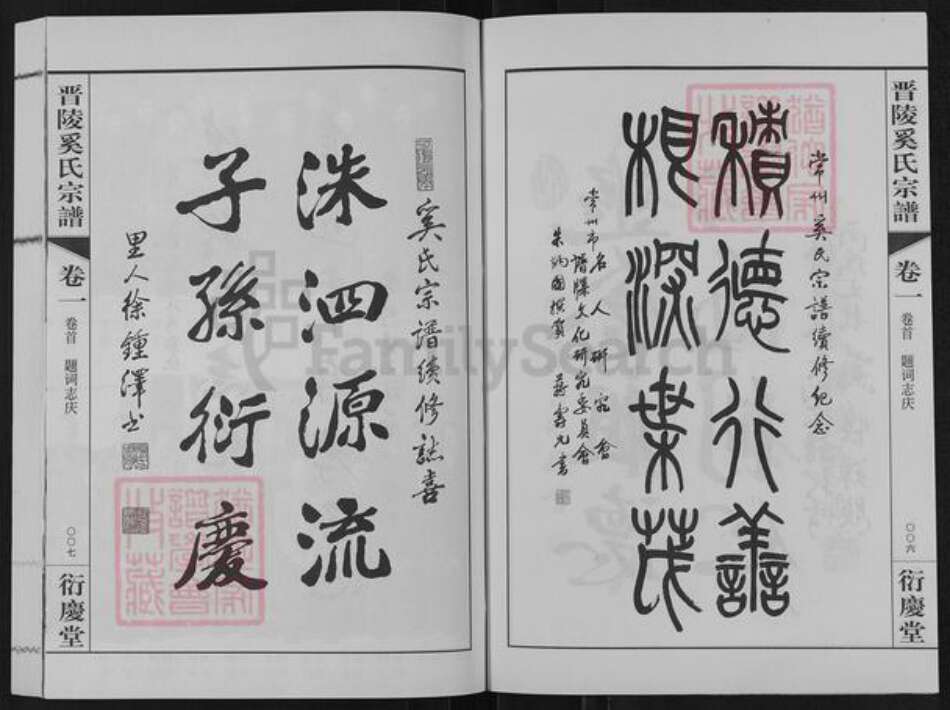 晋陵奚氏宗譜
卷一
卷首 题词志庆
〇〇六
衍慶堂
常州奚氏宗譜續修紀念
積德行善
根深葉茂
常州市名人研究會
譜牒文化研究委員會
朱炳國撰賀
奚氏宗譜續修誌喜
洙泗源流
子孫衍慶
里人徐鍾澤书
晋陵奚氏宗譜
卷一
卷首 题词志庆
〇〇七
衍慶堂
FamilySearch